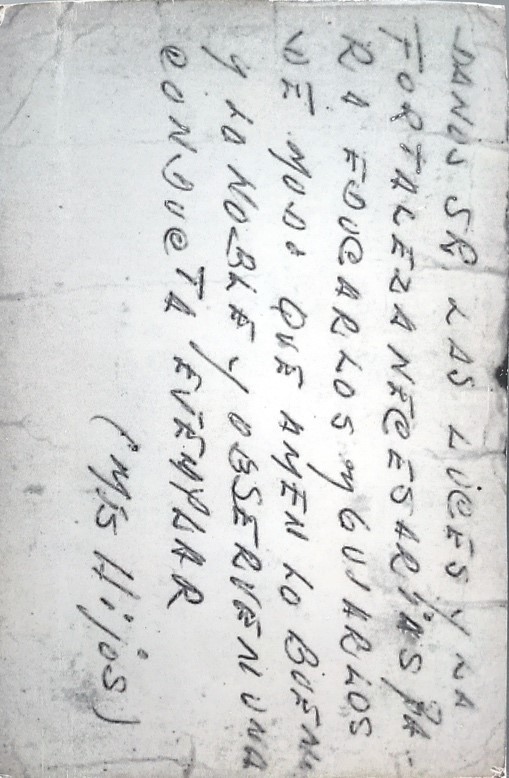 DANOS SR LAS LUCES Y LA
FORTALEZA NECESARIAS PA-
RA EDUCARLOS Y GUIARLOS
DE MODO QUE AMEN LO BUENO
Y LO NOBLE Y OBSERVEN UNA
CONDUCTA EJEMPLAR
(MIS HIJOS)